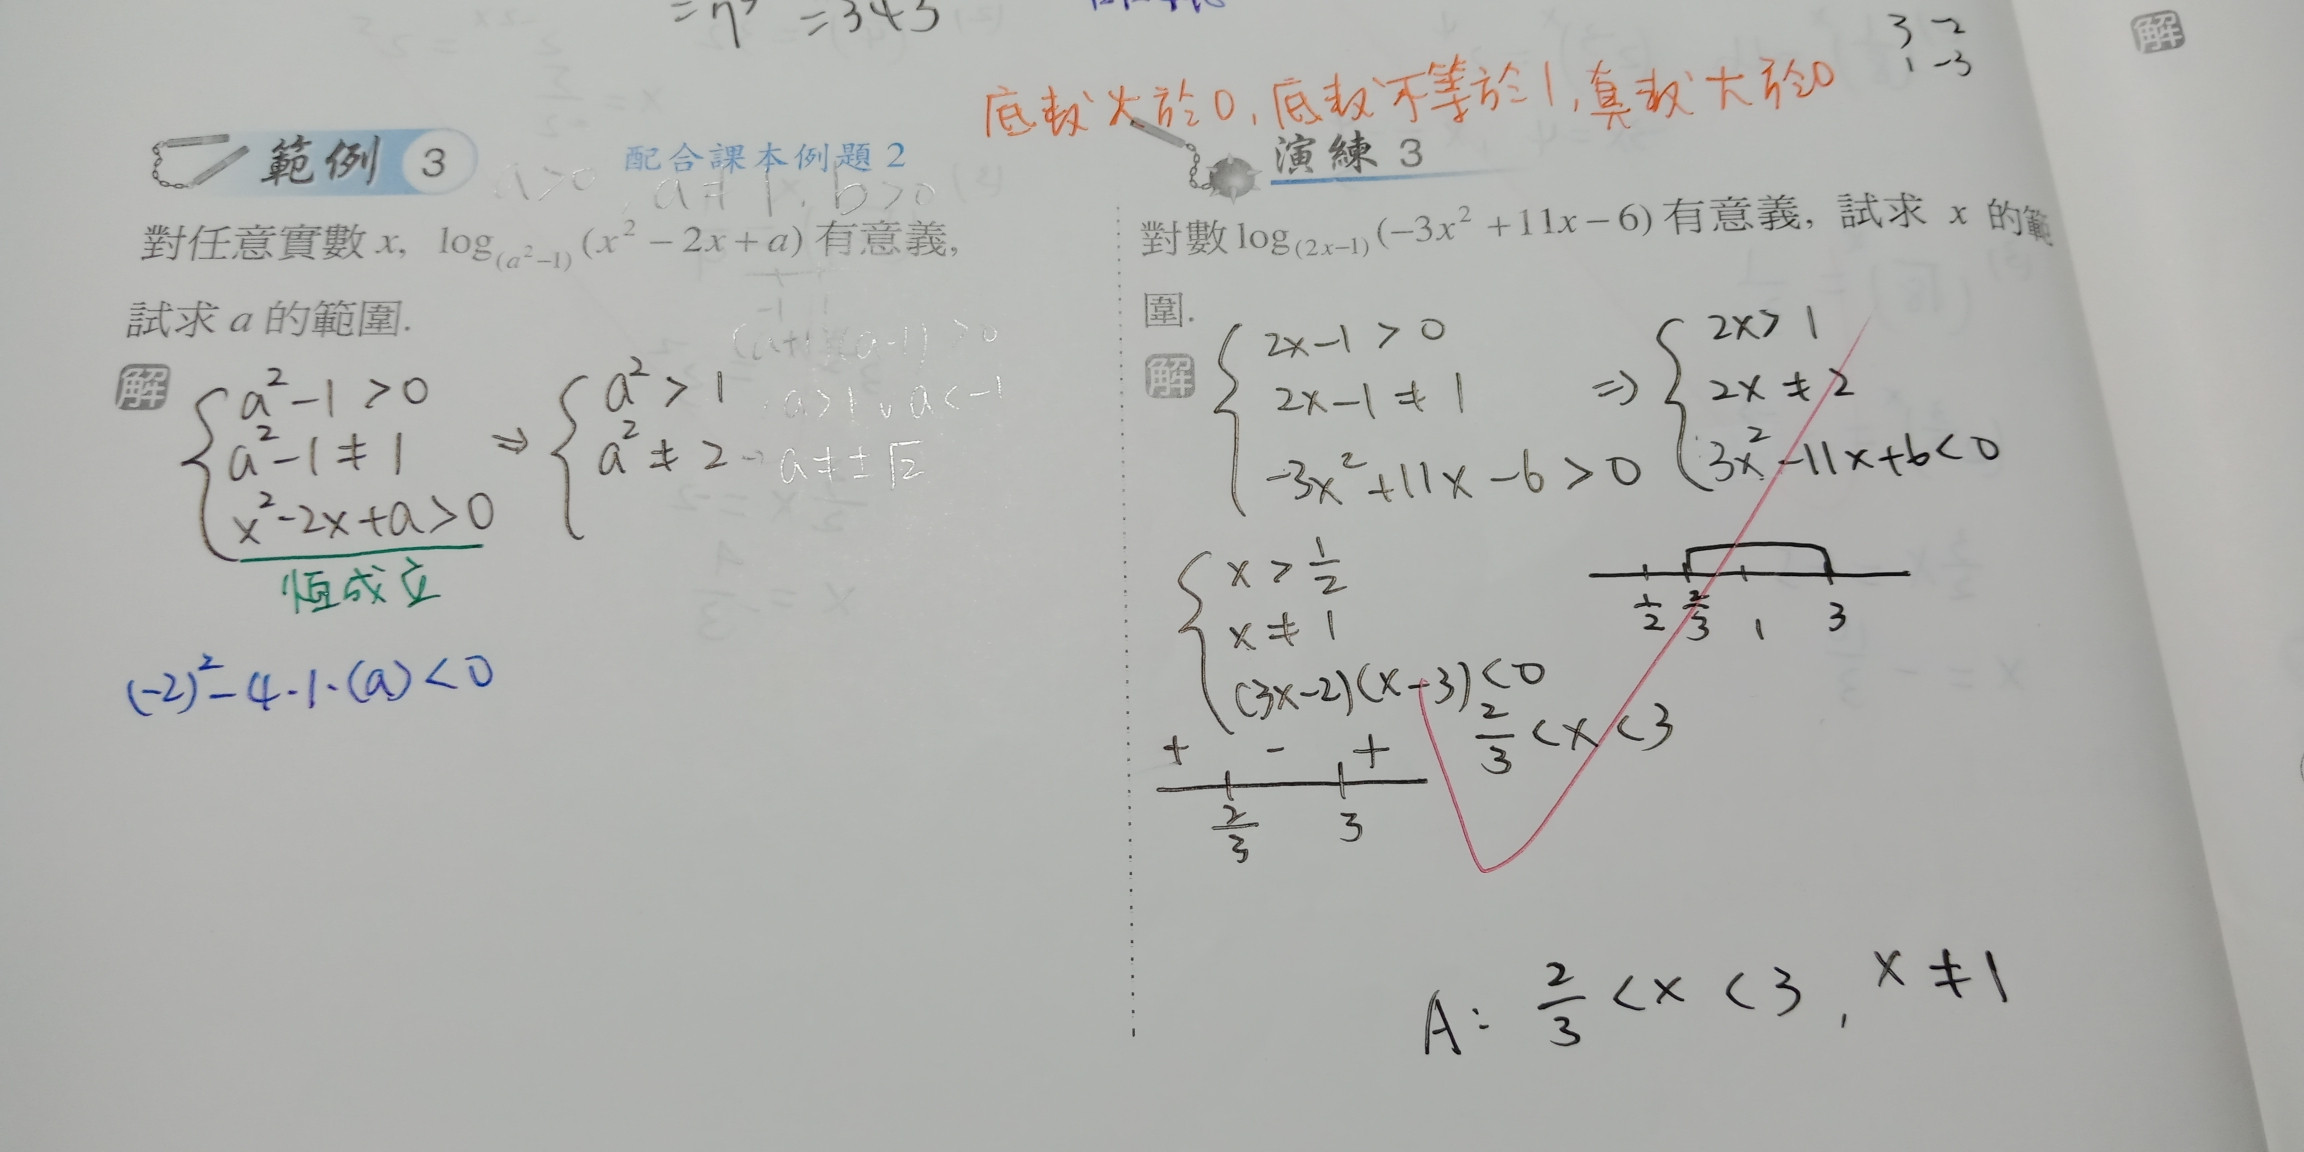 =7³ =343
3 -2
1 -3
解
底數大於0, 底數不等於1, 真數大於0
範例 3 配合課本例題 2
a>0, a≠1, b>0
對任意實數 x, log₍ₐ²₋₁₎(x² − 2x + a) 有意義,
試求 a 的範圍.
(a+1)(a-1)>0
解
a²-1>0
a²-1≠1
x²-2x+a>0
恆成立
⇒
a²>1
a>1 ∨ a<-1
a²≠2 → a≠±√2
(-2)²-4·1·(a)<0
演練 3
對數 log₍₂ₓ₋₁₎(−3x² + 11x − 6) 有意義, 試求 x 的範
圍.
解
2x-1>0
2x-1≠1
-3x²+11x-6>0
⇒
2x>1
2x≠2
3x²-11x+6<0
x>1/2
x≠1
(3x-2)(x-3)<0
2/3<x<3
1/2 2/3 1 3
+ - +
2/3 3
A: 2/3<x<3, x≠1